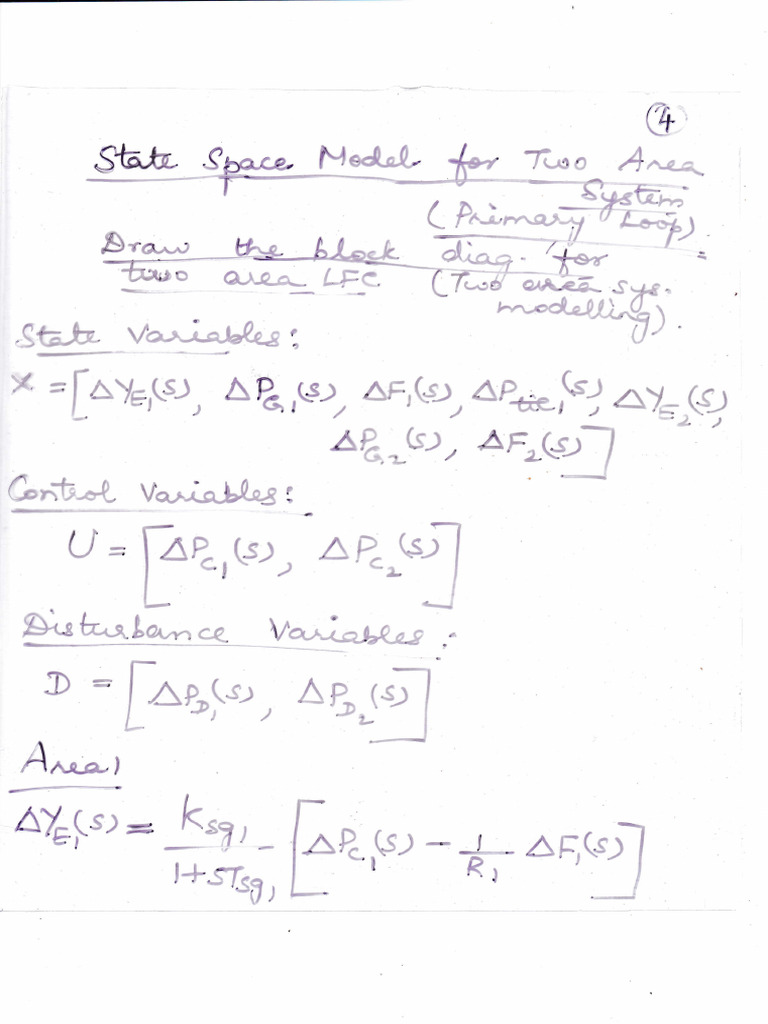 4
State Space Model for Two Area
System
(Primary Loop).
Draw the block diag. for
two area LFC (Two area sys.
modelling).
State Variables:
X = [ΔY_E₁(s), ΔP_G₁(s), ΔF₁(s), ΔP_tie₁(s), ΔY_E₂(s),
ΔP_G₂(s), ΔF₂(s)]
Control Variables:
U = [ΔP_C₁(s), ΔP_C₂(s)]
Disturbance Variables:
D = [ΔP_D₁(s), ΔP_D₂(s)]
Area 1
ΔY_E₁(s) = K_sg₁ / (1+sT_sg₁) [ΔP_C₁(s) − 1/R₁ ΔF₁(s)]